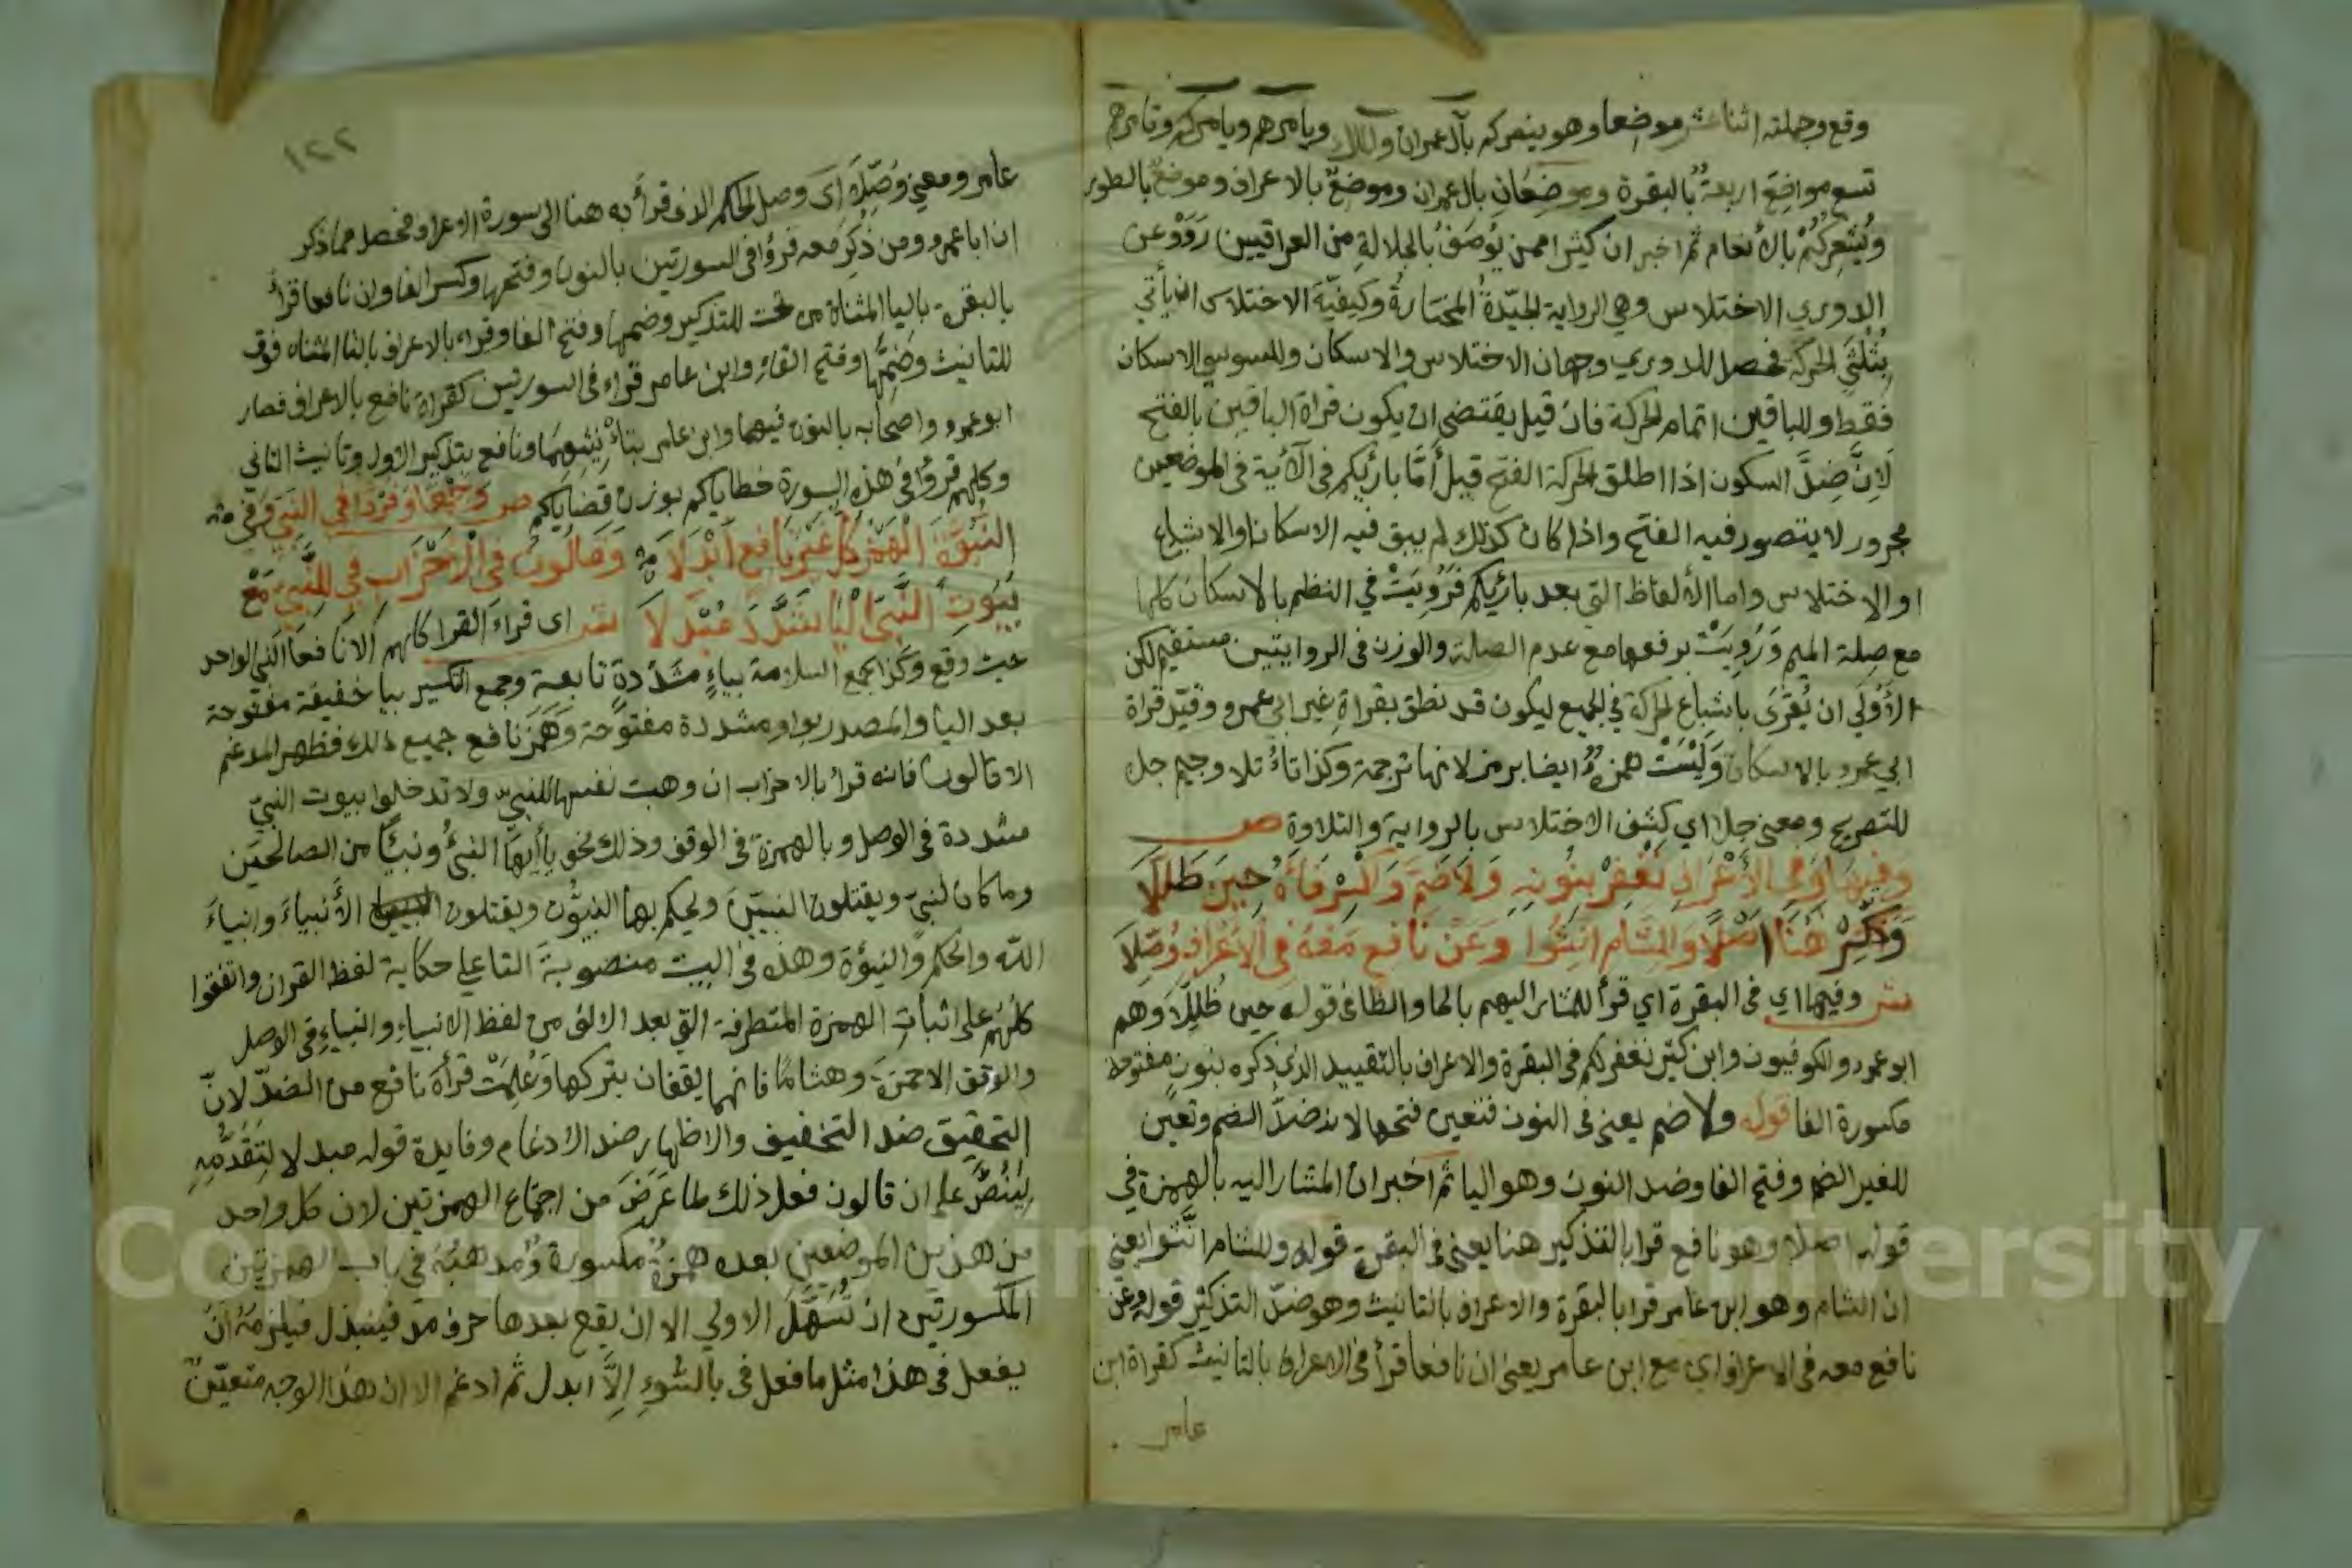 وقع وجملته اثنا عشر موضعا وهو ينصركم بآل عمران والملك ويامرهم ويامركم وتامرهم
تسع مواضع اربعة بالبقرة وموضعان بال عمران وموضع بالاعراف وموضع بالطور
ويُشعِركُمْ بالأنعام ثم اخبر ان كثيرا ممن يُوصَفُ بالجلالةِ من العراقيين رَوَوْا عن
الدوري الاختلاس وهي الرواية الجيّدةُ المختارةُ وكيفيّة الاختلاس ان يأتي
بثُلثَي الحركة فحصل للدوري وجهان الاختلاس والاسكان وللسوسي الاسكان
فقط وللباقين اتمام الحركة فان قيل يقتضي ان يكون قراة الباقين بالفتح
لانّ ضِدَّ السكون اذا اطلق الحركة الفتح قيل أمّا بارئكم في الآية في الموضعين
مجرور لا يتصور فيه الفتح واذا كان كذلك لم يبق فيه الا سكانا والاشباع
او الاختلاس واما الألفاظ التي بعد بارئكم فَرُوِيَتْ في النظم بالاسكان كلها
مع صلة الميم وَرُوِيَتْ برفعها مع عدم الصلة والوزن في الروايتين مستقيم لكن
الأَوْلَى ان يُقرَى باشباع الحركة في الجميع ليكون قد نطق بقراةِ غير ابي عمرو وقيّد قراة
ابي عمرو بالاسكان وَلَيْسَتْ همزةُ ايضا برمز لانها ترجمة وكذا تاءُ تلا وجيم جلا
للتصريح ومعنى جلا اي كشف الاختلاس بالرواية والتلاوة ص
وَفِيهَا وَفِي الأَعْرَافِ نَغْفِرْ بِنُونِهِ وَلَا ضَمَّ وَاكْسِرْ فَاءَهُ حِينَ ظَلَّلَا
وَذَكِّرْ هُنَا اصْلًا وَلِلشَّامِ انَّثُوا وَعَنْ نَافِعٍ مَعْهُ فِي الأَعْرَافِ وُصِّلَا
ش وفيها اي في البقرة اي قرأ للمشار اليهم بالحا والظا في قوله حين ظُلِّلَا وهم
ابو عمرو والكوفيون وابن كثير نغفر لكم في البقرة والاعراف بالتقييد الذي ذكره بنون مفتوحة
مكسورة الفا قوله ولا ضم يعنى في النون فتعين فتحها لانه ضدّ الضم وتعين
للغير الضم وفتح الفا وضد النون وهو اليا ثم اخبر ان المشار اليه بالهمزة في
قوله اصلا وهو نافع قرا بالتذكير هنا يعني في البقرة قوله وللشام انّثوا يعني
ان الشام وهو ابن عامر قرا بالبقرة والاعراف بالتانيث وهو ضدّ التذكير قوله وعن
نافع معه في الاعراف اي مع ابن عامر يعنى ان نافعا قرأ في الاعراف بالتانيث كقراة ابن
عامر
١٢٢
عامر ومعنى وُصِّلا اى وصل الحكم الذى قرأ به هنا الى سورة الاعراف فحصل مما ذكر
ان ابا عمرو ومن ذُكِرَ معه قرؤا في السورتين بالنون وفتحها وكسر الفا وان نافعا قرأ
بالبقرة باليا المثناة من تحت للتذكير وضمها وفتح الفا وقراء بالاعراف بالتا المثناه فوق
للتانيث وضمِّها وفتح الفاءِ وابن عامر قراء في السورتين كقراة نافع بالاعراف فصار
ابو عمرو واصحابه بالنون فيهما وابن عامر بتاءِ تأنيثهما ونافع بتذكير الاول وتانيث الثاني
وكلهم قرؤا في هذه السورة خطاياكم بوزن قضاياكم ص وَجَمْعًا وَفَرْدًا فِي النَّبِيِّ وَفِي
النُّبُوَّةِ الْهَمْزَ كُلٌّ غَيْرَ نَافِعٍ ابْدَلَا وَقَالُونُ فِي الْأَحْزَابِ فِي لِلنَّبِيِّ مَعْ
بُيُوتَ النَّبِيِّ الْيَا شَدَّدَ مُبْدِلَا ش اى قراءَ القرا كلهم الا نافعا النبي الواحد
حيث وقع وكذا جمع السلامة بياءٍ مشدّدةٍ تابعة وجمع التكسير بيا خفيفة مفتوحة
بعد اليا والمصدر بواو مشددة مفتوحة وَهَمَزَ نافع جميع ذلك فظهر المدغم
الا قالون فانه قرا بالاحزاب ان وهبت نفسها للنبيّ ولا تدخلوا بيوت النبيّ
مشددة في الوصل وبالهمزة في الوقف وذلك نحو يأأيها النبيُّ ونبيًّا من الصالحين
وما كان لنبيّ ويقتلون النبيّين ويحكم بها النبيّون ويقتلون الأنبياءَ وانبياءَ
الله والحكم والنبوّة وهذه في البيت منصوبة التا على حكاية لفظ القران واتفقوا
كلهم على اثبات الهمزة المتطرفة التي بعد الالف من لفظ الانبياءِ وانبياءِ في الوصل
والوقف الا حمزة وهشامًا فانهما يقفان بتركها وعُلِمَتْ قرأة نافع من الضدّ لانّ
التحقيق ضد التخفيف والاظهار ضد الادغام وفايدة قوله مبدلا لتقدّمه
ليَنُصَّ على ان قالون فعل ذلك لما عَرَضَ من اجتماع الهمزتين لان كل واحد
من هذين الموضعين بعده همزةٌ مكسورة ومذهبُهُ في باب الهمزتين
المكسورتين ان تُسَهَّلَ الاولي الا ان يقع بعدها حرف مدّ فيُبدل فيلزمهُ ان
يفعل في هذا مثل ما فعل في بالسُّوءِ إلاَّ ابدل ثم ادغم الا ان هذا الوجه متعيّنٌ
Copyright © King Saud University